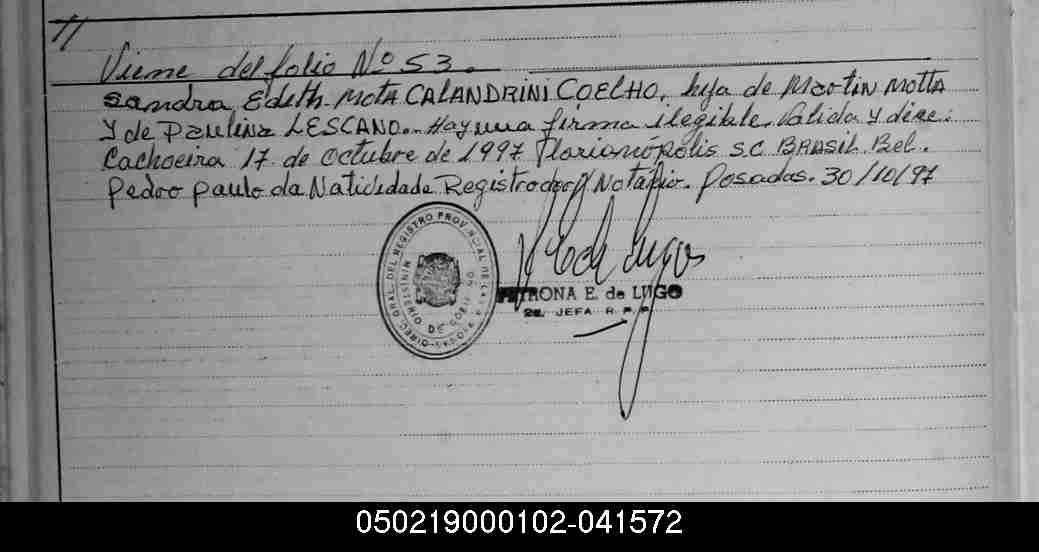 //
Viene del folio Nº 53.
Sandra Edith Mota CALANDRINI COELHO, hija de Martin Motta
Y de Paulina LESCANO.. Hay una firma ilegible. Válida y dice:
Cachoeira 17 de Octubre de 1997 Florianopolis S.C BRASIL. Bel.
Pedro Paulo da Natividade Registrador Y Notario. Posadas. 30/10/97
DIREC. GRAL. DEL REGISTRO PROVINCIAL DE LAS PERSONAS
MINISTERIO DE GOBIERNO
PETRONA E. de LUGO
2a. JEFA R. P. P.
050219000102-041572